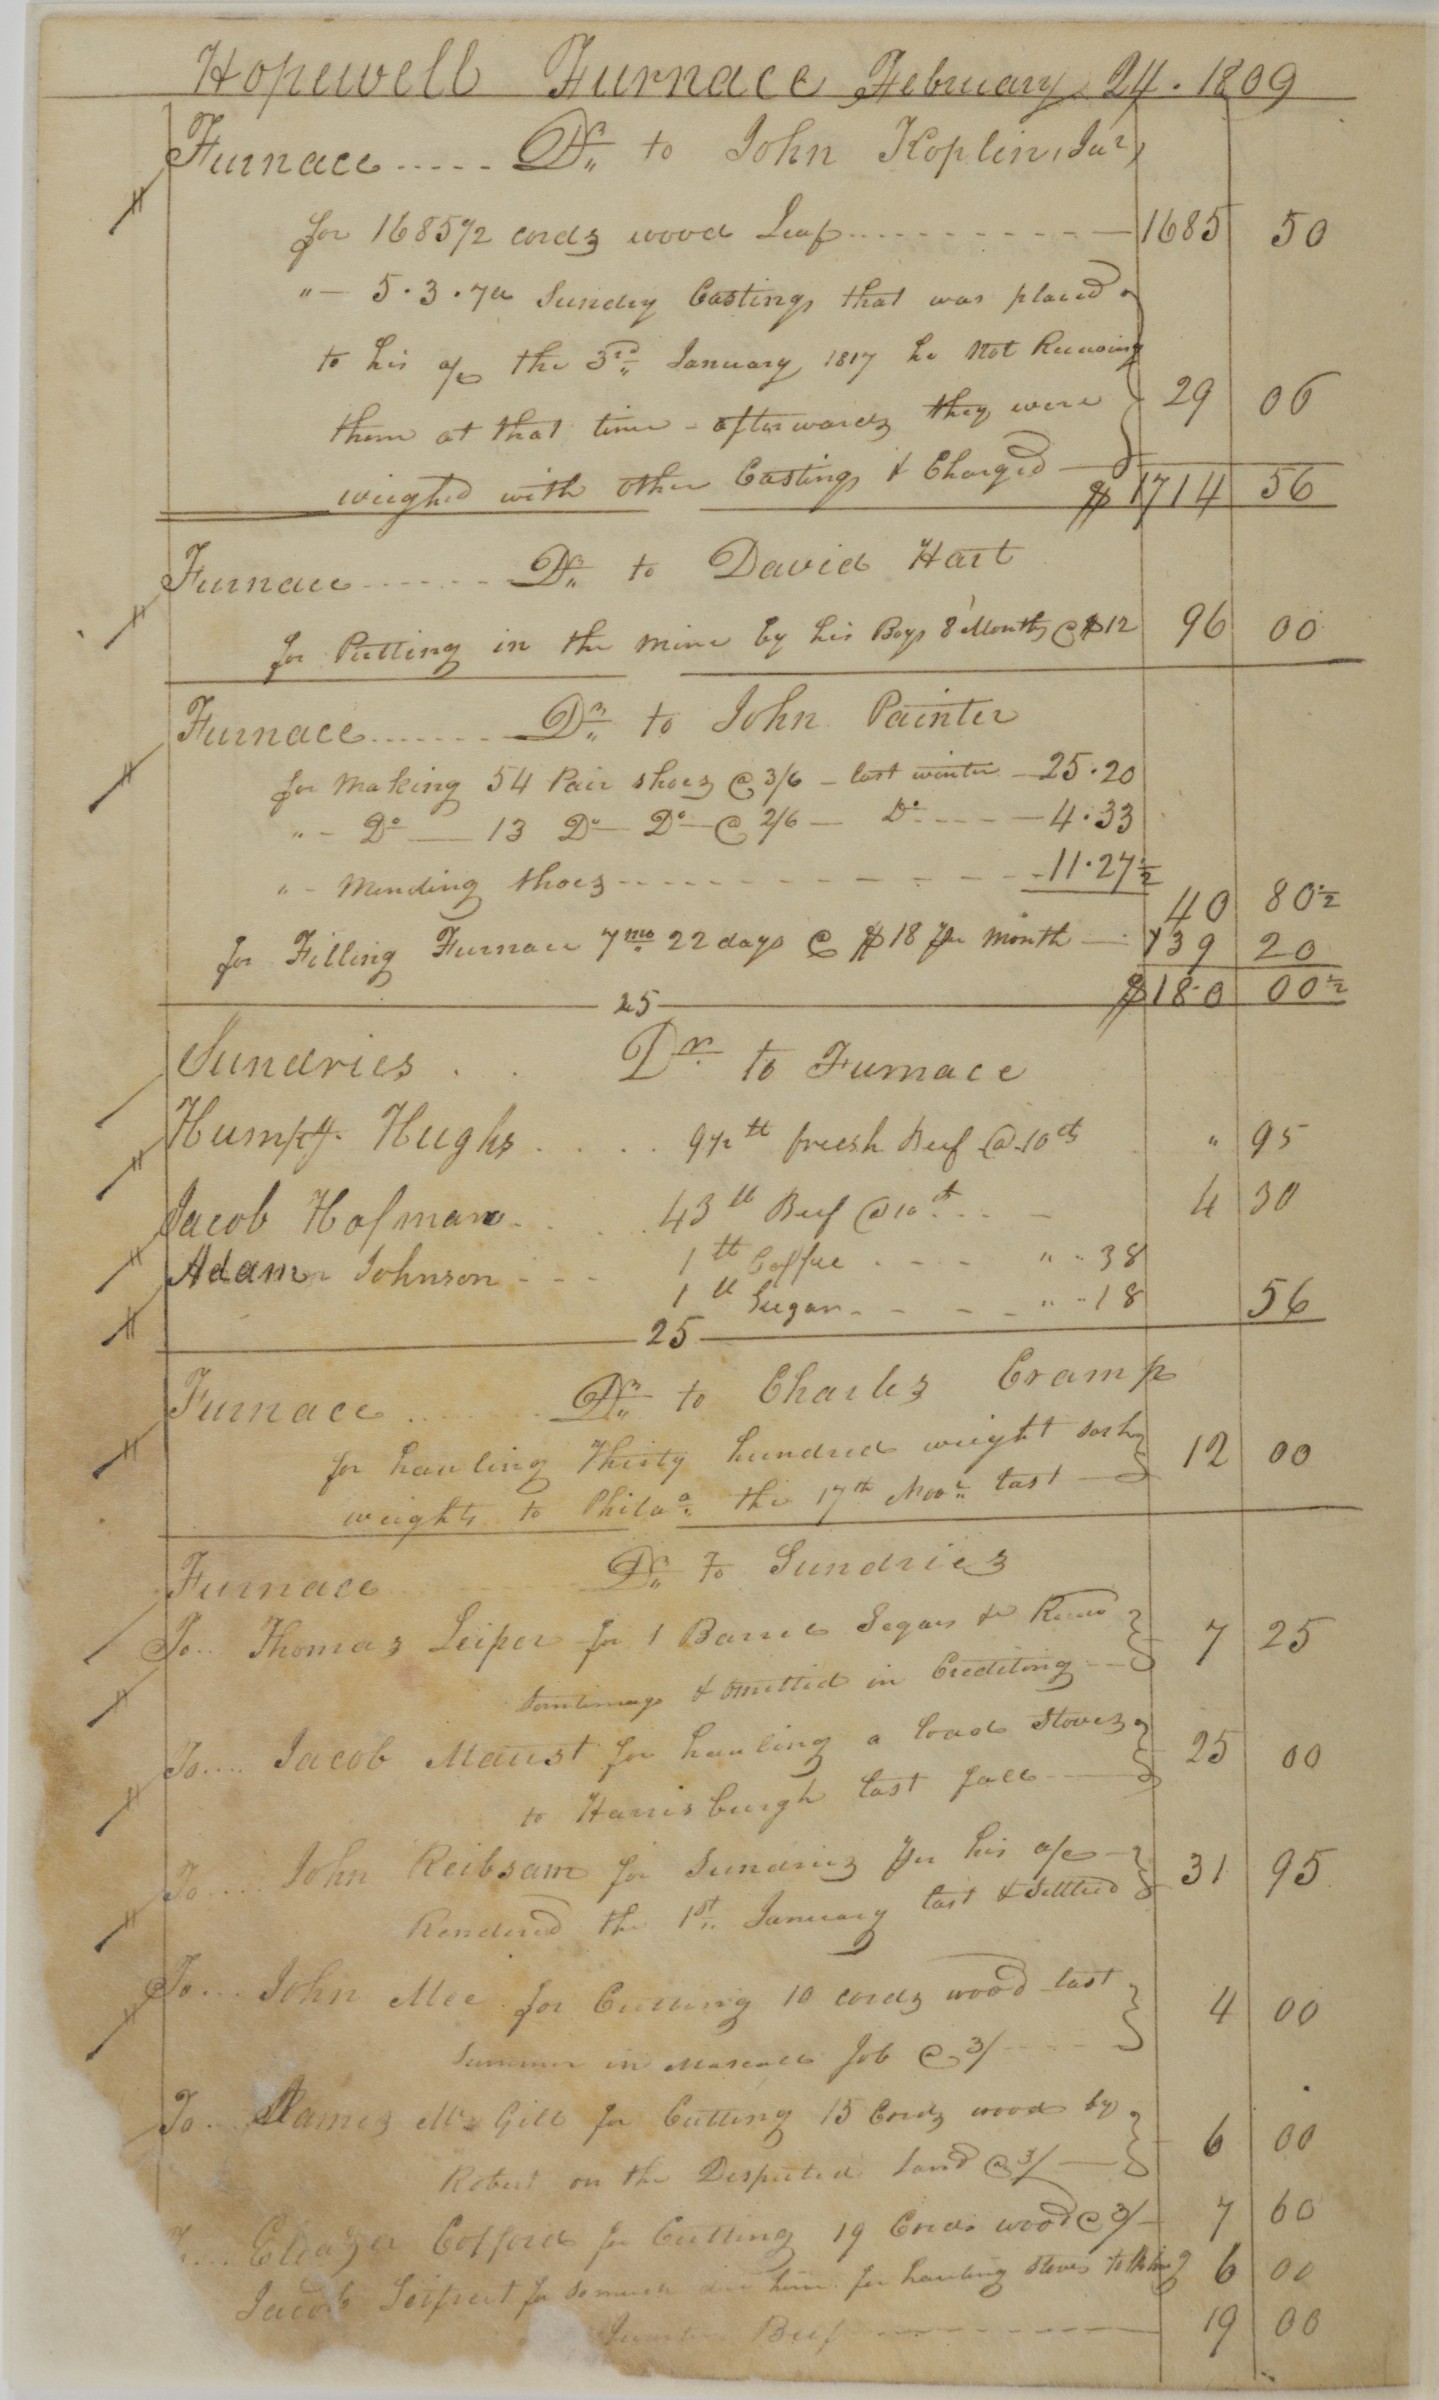 Hopewell Furnace February 24. 1809
Furnace ..... Dr. to John Koplin, Junr,
for 1685 1/2 cords wood Leaf ........... 1685 50
" – 5.3.7 lb Sundry Castings that was placed
to his a/c the 3rd January 1817 he Not Receiving
them at that time - afterwards they were 29 06
weighed with other Castings & Charged — $ 1714 56
Furnace ....... Dr. to David Hart
for Putting in the mine by his Boys 8 Months @ $12 96 00
Furnace ....... Dr. to John Painter
for Making 54 Pair shoes @ 3/6 – last winter – 25.20
" - Do — 13 Do — Do — @ 2/6 — Do ..... 4.33
" - Mending shoes ........... 11.27 1/2
40 80 1/2
for Filling Furnace 7 mo 22 days @ $18 per month — 139 20
$180 00 1/2
25
Sundries . . Dr. to Furnace
Humphy. Hughs . . . . 9 1/2 lb freesh Beef @ 10 cts " 95
Jacob Hofman . . . . 43 lb Beef @ 10 ct . . . 4 30
Adam Johnson - - - 1 lb Coffee . - - - " .. 38
1 lb Sugar - - - - " .. 18 56
25
Furnace ....... Dr. to Charles Cramp
for hauling Thirty hundred weight sash 12 00
weights to Phila. the 17th Novr. last —
Furnace ....... Dr. to Sundries
To .. Thomas Leiper for 1 Barrel Segars he Recd 7 25
sometime ago & omitted in Crediting ---
To .... Jacob Maust for hauling a load stoves 25 00
to Harrisburgh last fall —
To .... John Reibsam for Sundries per his a/c 31 95
Rendered the 1st January last & Settled
To ... John Mee for Cutting 10 cords wood last 4 00
summer in Job @ 3/ ----
To ... James Mc Gill for Cutting 15 Cords wood by 6 00
Robert on the Desputed Land @ 3/ —
.... Eleazer Cofford for Cutting 19 Cords wood @ 3/ – 7 60
Jacob Leifreet for so much due him for hauling stoves 6 00
Beef ---------- 19 00